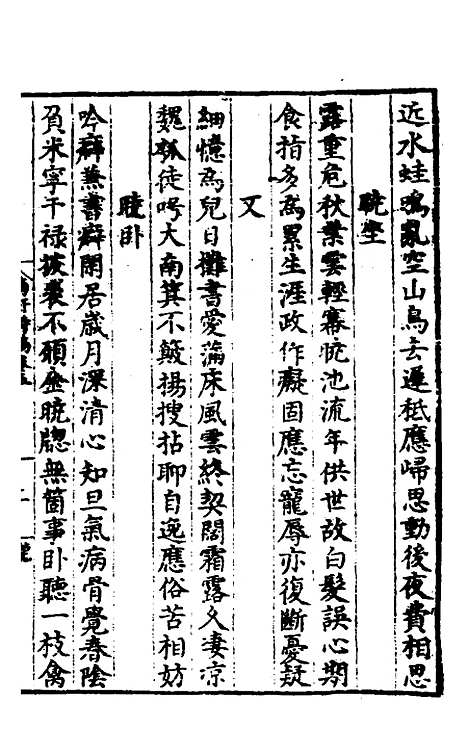 近水蛙鳴亂空山鳥去遲秪應歸思動後夜費相思
晩坐
露重危秋葉雲輕褰晩池流年供世故白髮誤心期
食指多為累生涯政作癡固應忘寵辱亦復斷憂疑
又
細憶為兒日攤書愛滿床風雲終契闊霜露久凄凉
魏瓠徒呺大南箕不簸揚搜拈聊自逸應俗苦相妨
曉卧
吟癖兼書癖閑居歲月深清心知旦氣病骨覺春陰
負米寧干祿披裘不顧金晩牕無箇事卧聽一枝禽